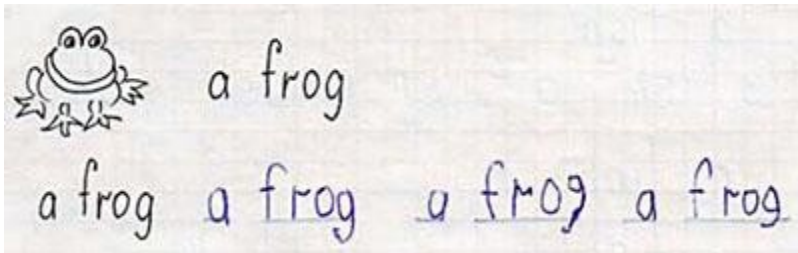 a frog
a frog a frog a frog a frog